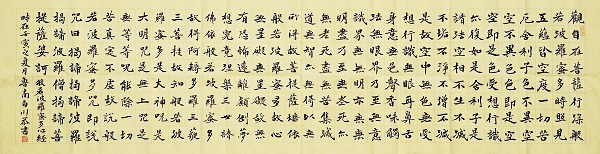 觀自在菩薩行深般
若波羅蜜多時照見
五蘊皆空度一切苦
厄舍利子色不異空
空不異色色即是空
空即是色受想行識
亦復如是舍利子是
諸法空相不生不滅
不垢不淨不增不減
是故空中無色無受
想行識無眼耳鼻舌
身意無色聲香味觸
法無眼界乃至無意
識界無無明亦無無
明盡乃至無老死亦
無老死盡無苦集滅
道無智亦無得以無
所得故菩提薩埵依
般若波羅蜜多故心
無罣礙無罣礙故無
有恐怖遠離顛倒夢
想究竟涅槃三世諸
佛依般若波羅蜜多
故得阿耨多羅三藐
三菩提故知般若波
羅蜜多是大神咒是
大明咒是無上咒是
無等等咒能除一切
苦真實不虛故說般
若波羅蜜多咒即說
咒曰揭諦揭諦波羅
揭諦波羅僧揭諦菩
提薩婆訶 般若波羅蜜多心經
時在壬寅之夏月魯南百川恭書